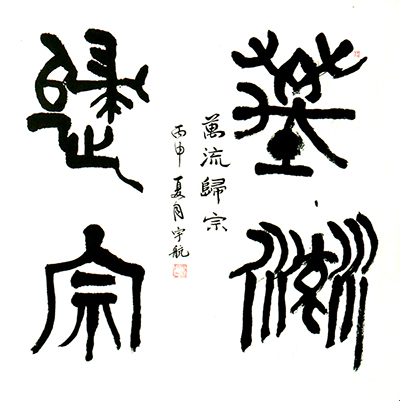 萬流
歸宗
萬流歸宗
丙申夏月宇航